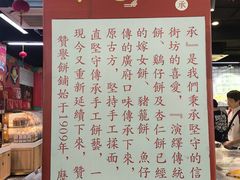 承
『承』是我們秉承堅守的信
街坊的喜愛，『演繹傳統
餅、鷄仔餅及杏仁餅已經
的嫁女餅、豬籠餅、魚仔
傳的廣府口味傳承下來，
原古方，堅持手工揉面，
直堅守傳承手工餅藝，一
現今又重新延續下來，贊
贊譽餅鋪始于1909年，歷